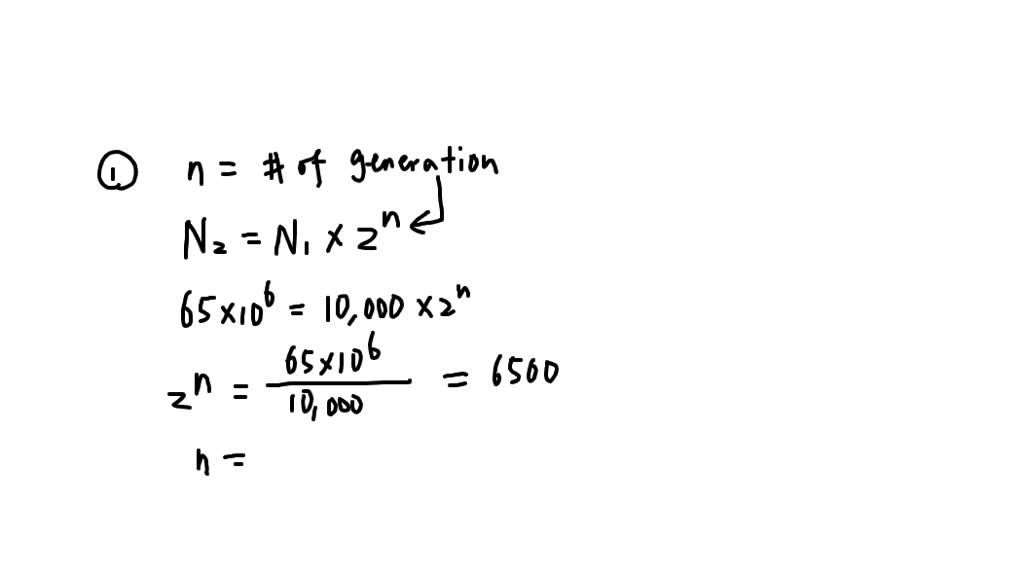 ① n = # of generation
N₂ = N₁ × 2ⁿ
65×10⁶ = 10,000 × 2ⁿ
2ⁿ = 65×10⁶ / 10,000 = 6500
n =